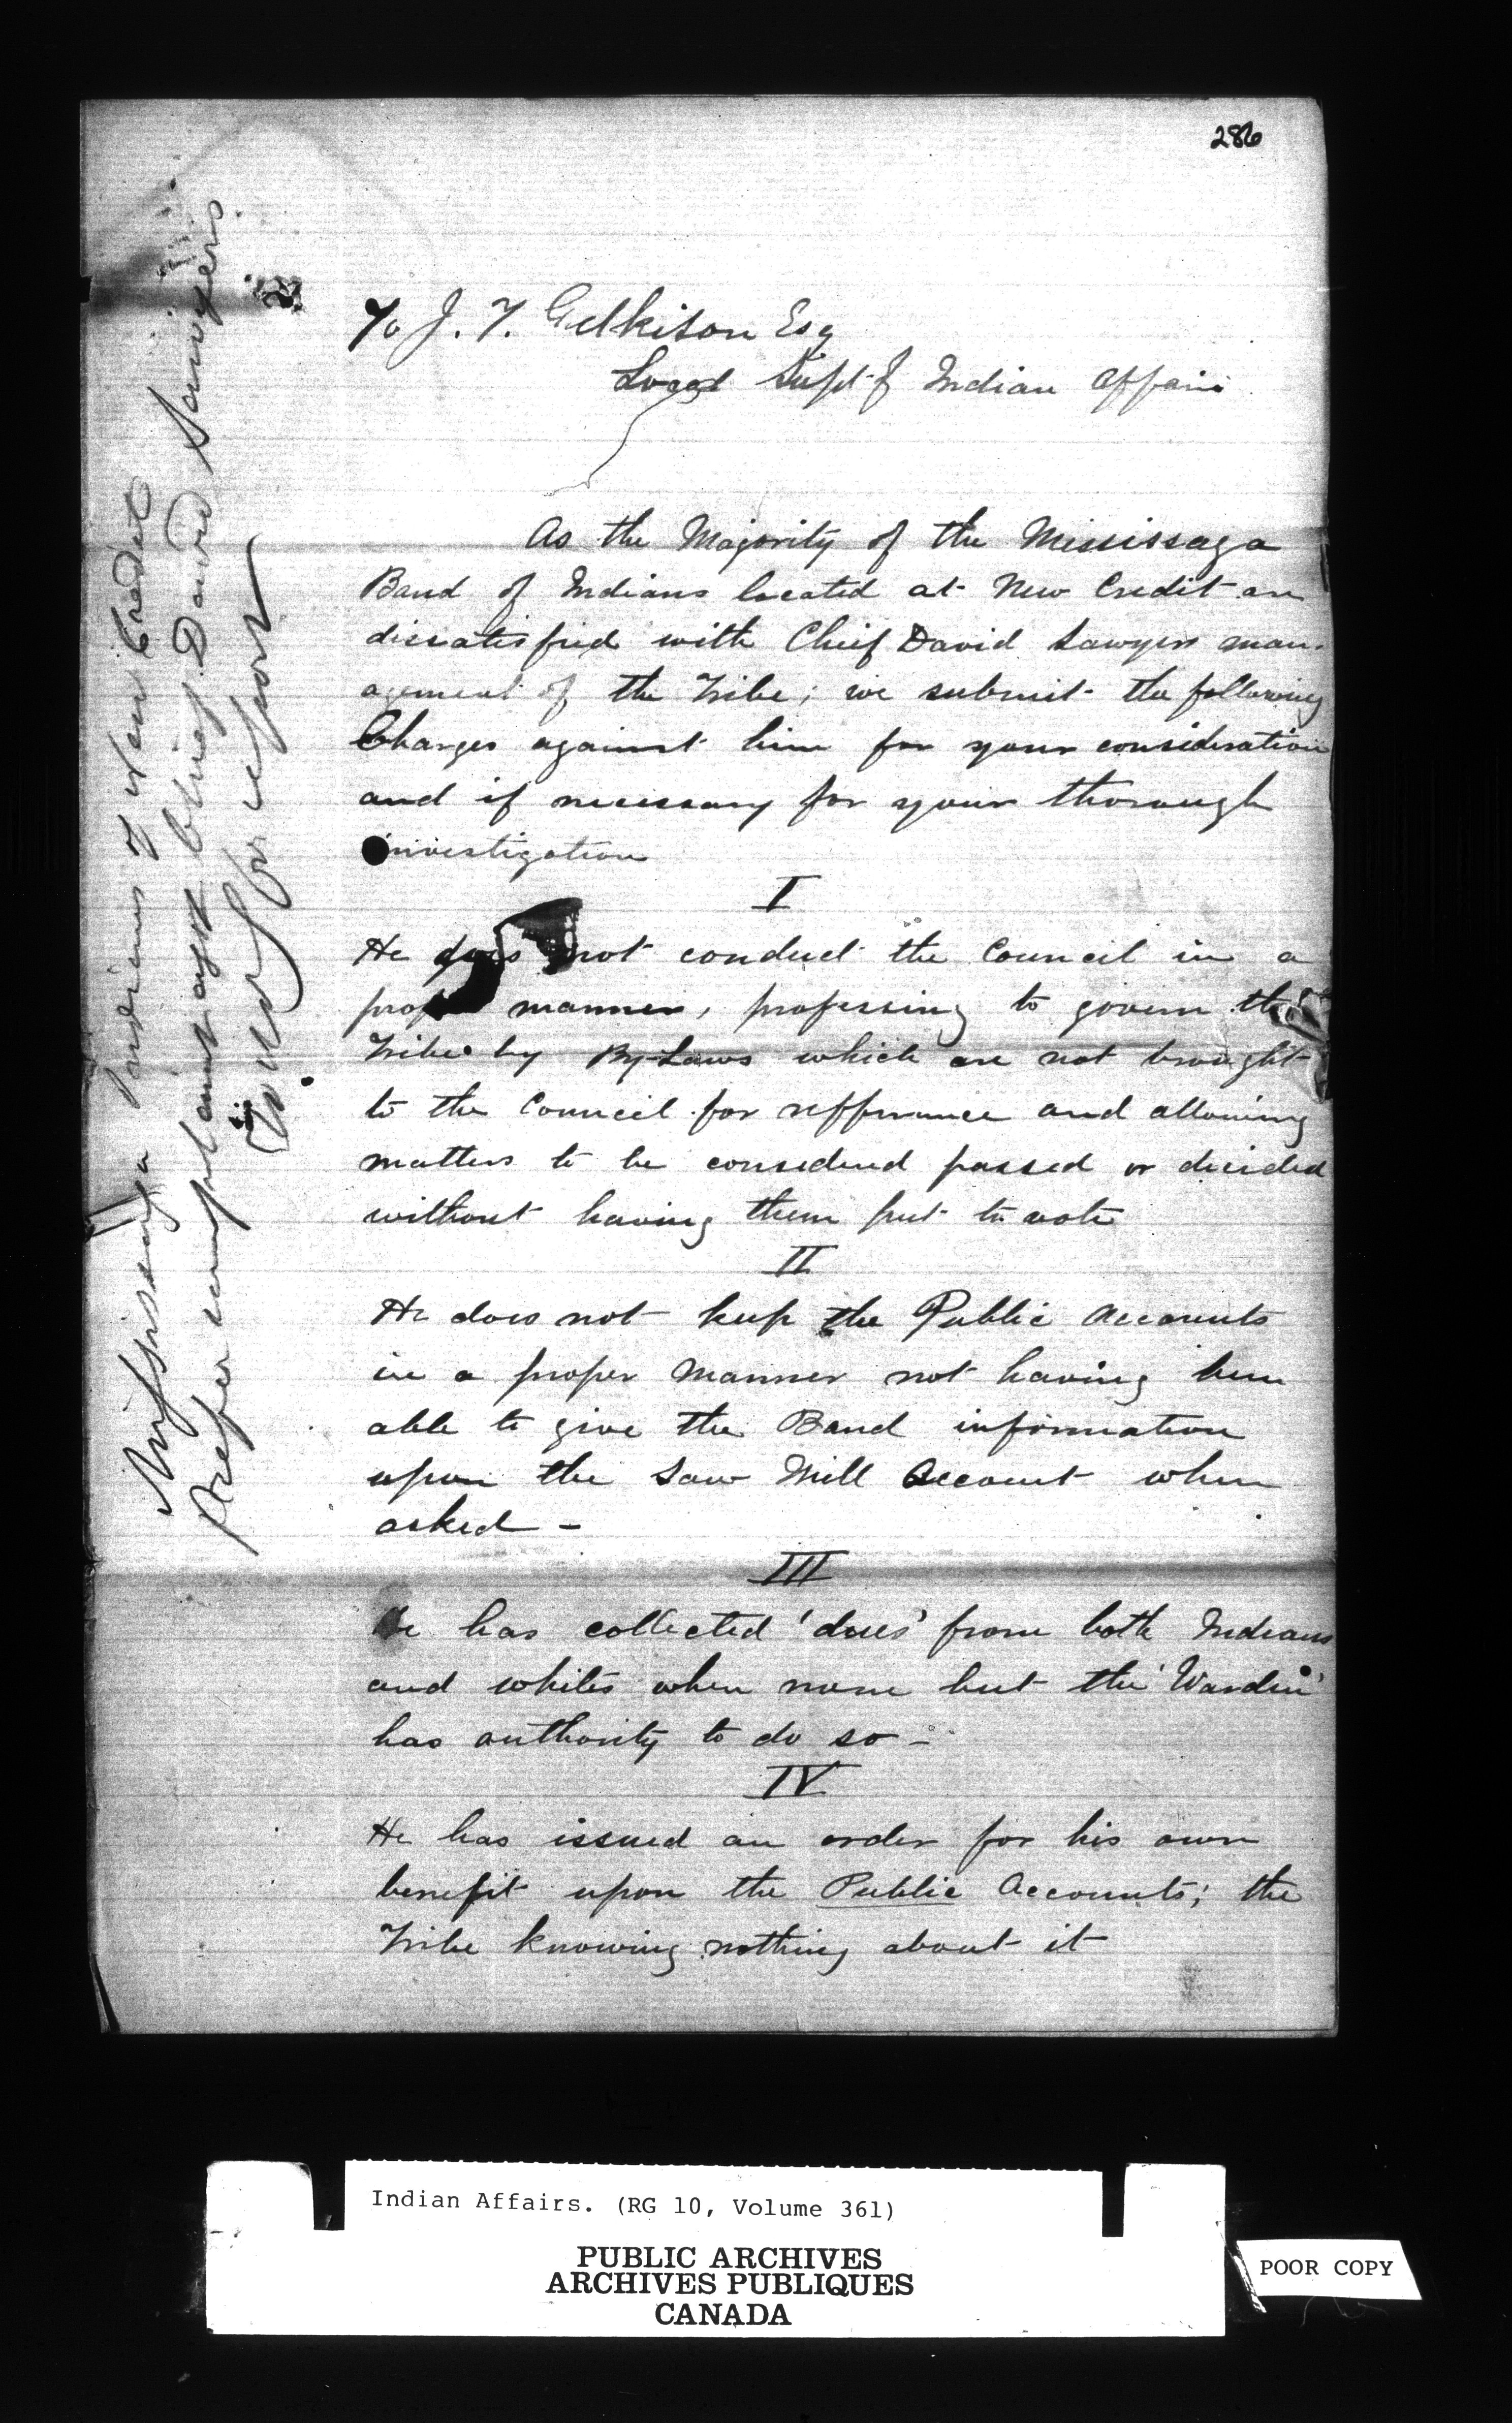 286
To J. T. Gilkison Esq
Local Supt of Indian Affairs
As the Majority of the Mississaga
Band of Indians located at New Credit are
dissatisfied with Chief David Sawyers man-
agement of the Tribe; we submit the following
Charges against him for your consideration
and if necessary for your thorough
investigation
I
He does not conduct the Council in a
proper manner, professing to govern the
Tribe by By-Laws which are not brought
to the Council for refferance and allowing
matters to be considered passed or decided
without having them put to vote
II
He does not keep the Public Accounts
in a proper manner not having been
able to give the Band information
upon the Saw Mill Account when
asked -
III
He has collected 'dues' from both Indians
and whites when none but the 'Warden'
has authority to do so -
IV
He has issued an order for his own
benefit upon the Public Accounts; the
Tribe knowing nothing about it
Missisaga Indians of New Credit
Prefer complaint agst Chief David Sawyers
for report
Indian Affairs. (RG 10, Volume 361)
PUBLIC ARCHIVES
ARCHIVES PUBLIQUES
CANADA
POOR COPY